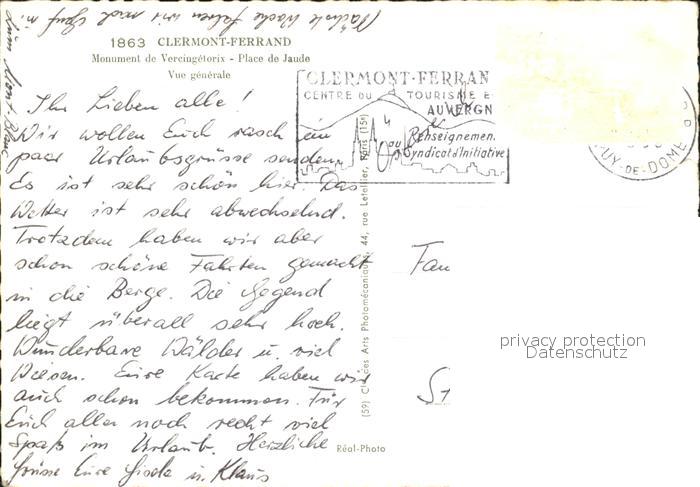 1863 CLERMONT-FERRAND
Monument de Vercingétorix - Place de Jaude
Vue générale
Ihr Lieben alle!
Wir wollen Euch rasch ein
paar Urlaubsgrüsse senden.
Es ist sehr schön hier. Das
Wetter ist sehr abwechselnd.
Trotzdem haben wir aber
schon schöne Fahrten gemacht
in die Berge. Die Gegend
liegt überall sehr hoch.
Wunderbare Wälder u. viel
Wiesen. Eure Karte haben wir
auch schon bekommen. Für
Euch allen noch recht viel
Spaß im Urlaub. Herzliche
Grüsse Eure Gisela u. Klaus
Nächste Woche fahren wir nach Genf u.
zum Mont Blanc
CLERMONT-FERRAN
CENTRE DU TOURISME E
AUVERGN
Renseignemen
Syndicat d'Initiative
PUY-DE-DOME
(59) Clichés Arts Photomécaniques, 44, rue Letellier, Paris (15e)
Réal-Photo
Fam
St
privacy protection
Datenschutz